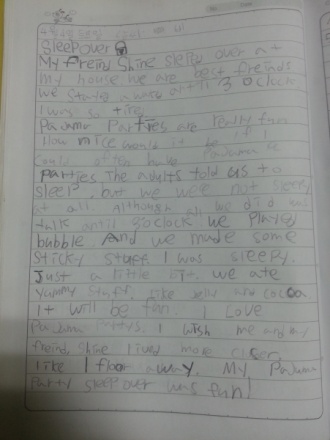 Sleepover
My freind Shine sleep over at
my house we are best freinds
we stayed awake until 3 o'clock
I was so tired
Pajama Parties are really fun
How nice would it be if I
could often have Pajama
parties The adults told us to
sleep, but we were not sleepy
at all. Although all we did was
talk until 3 o'clock we played
bubble And we made some
Sticky stuff I was sleepy.
Just a little bit. we ate
yummy stuff. like Jelly and cocoa.
It will be fun I Love
Pajama Partys. I wish me and my
freind, Shine lived more closer
like 1 floor away. My Pajama
Party sleep over was fun!